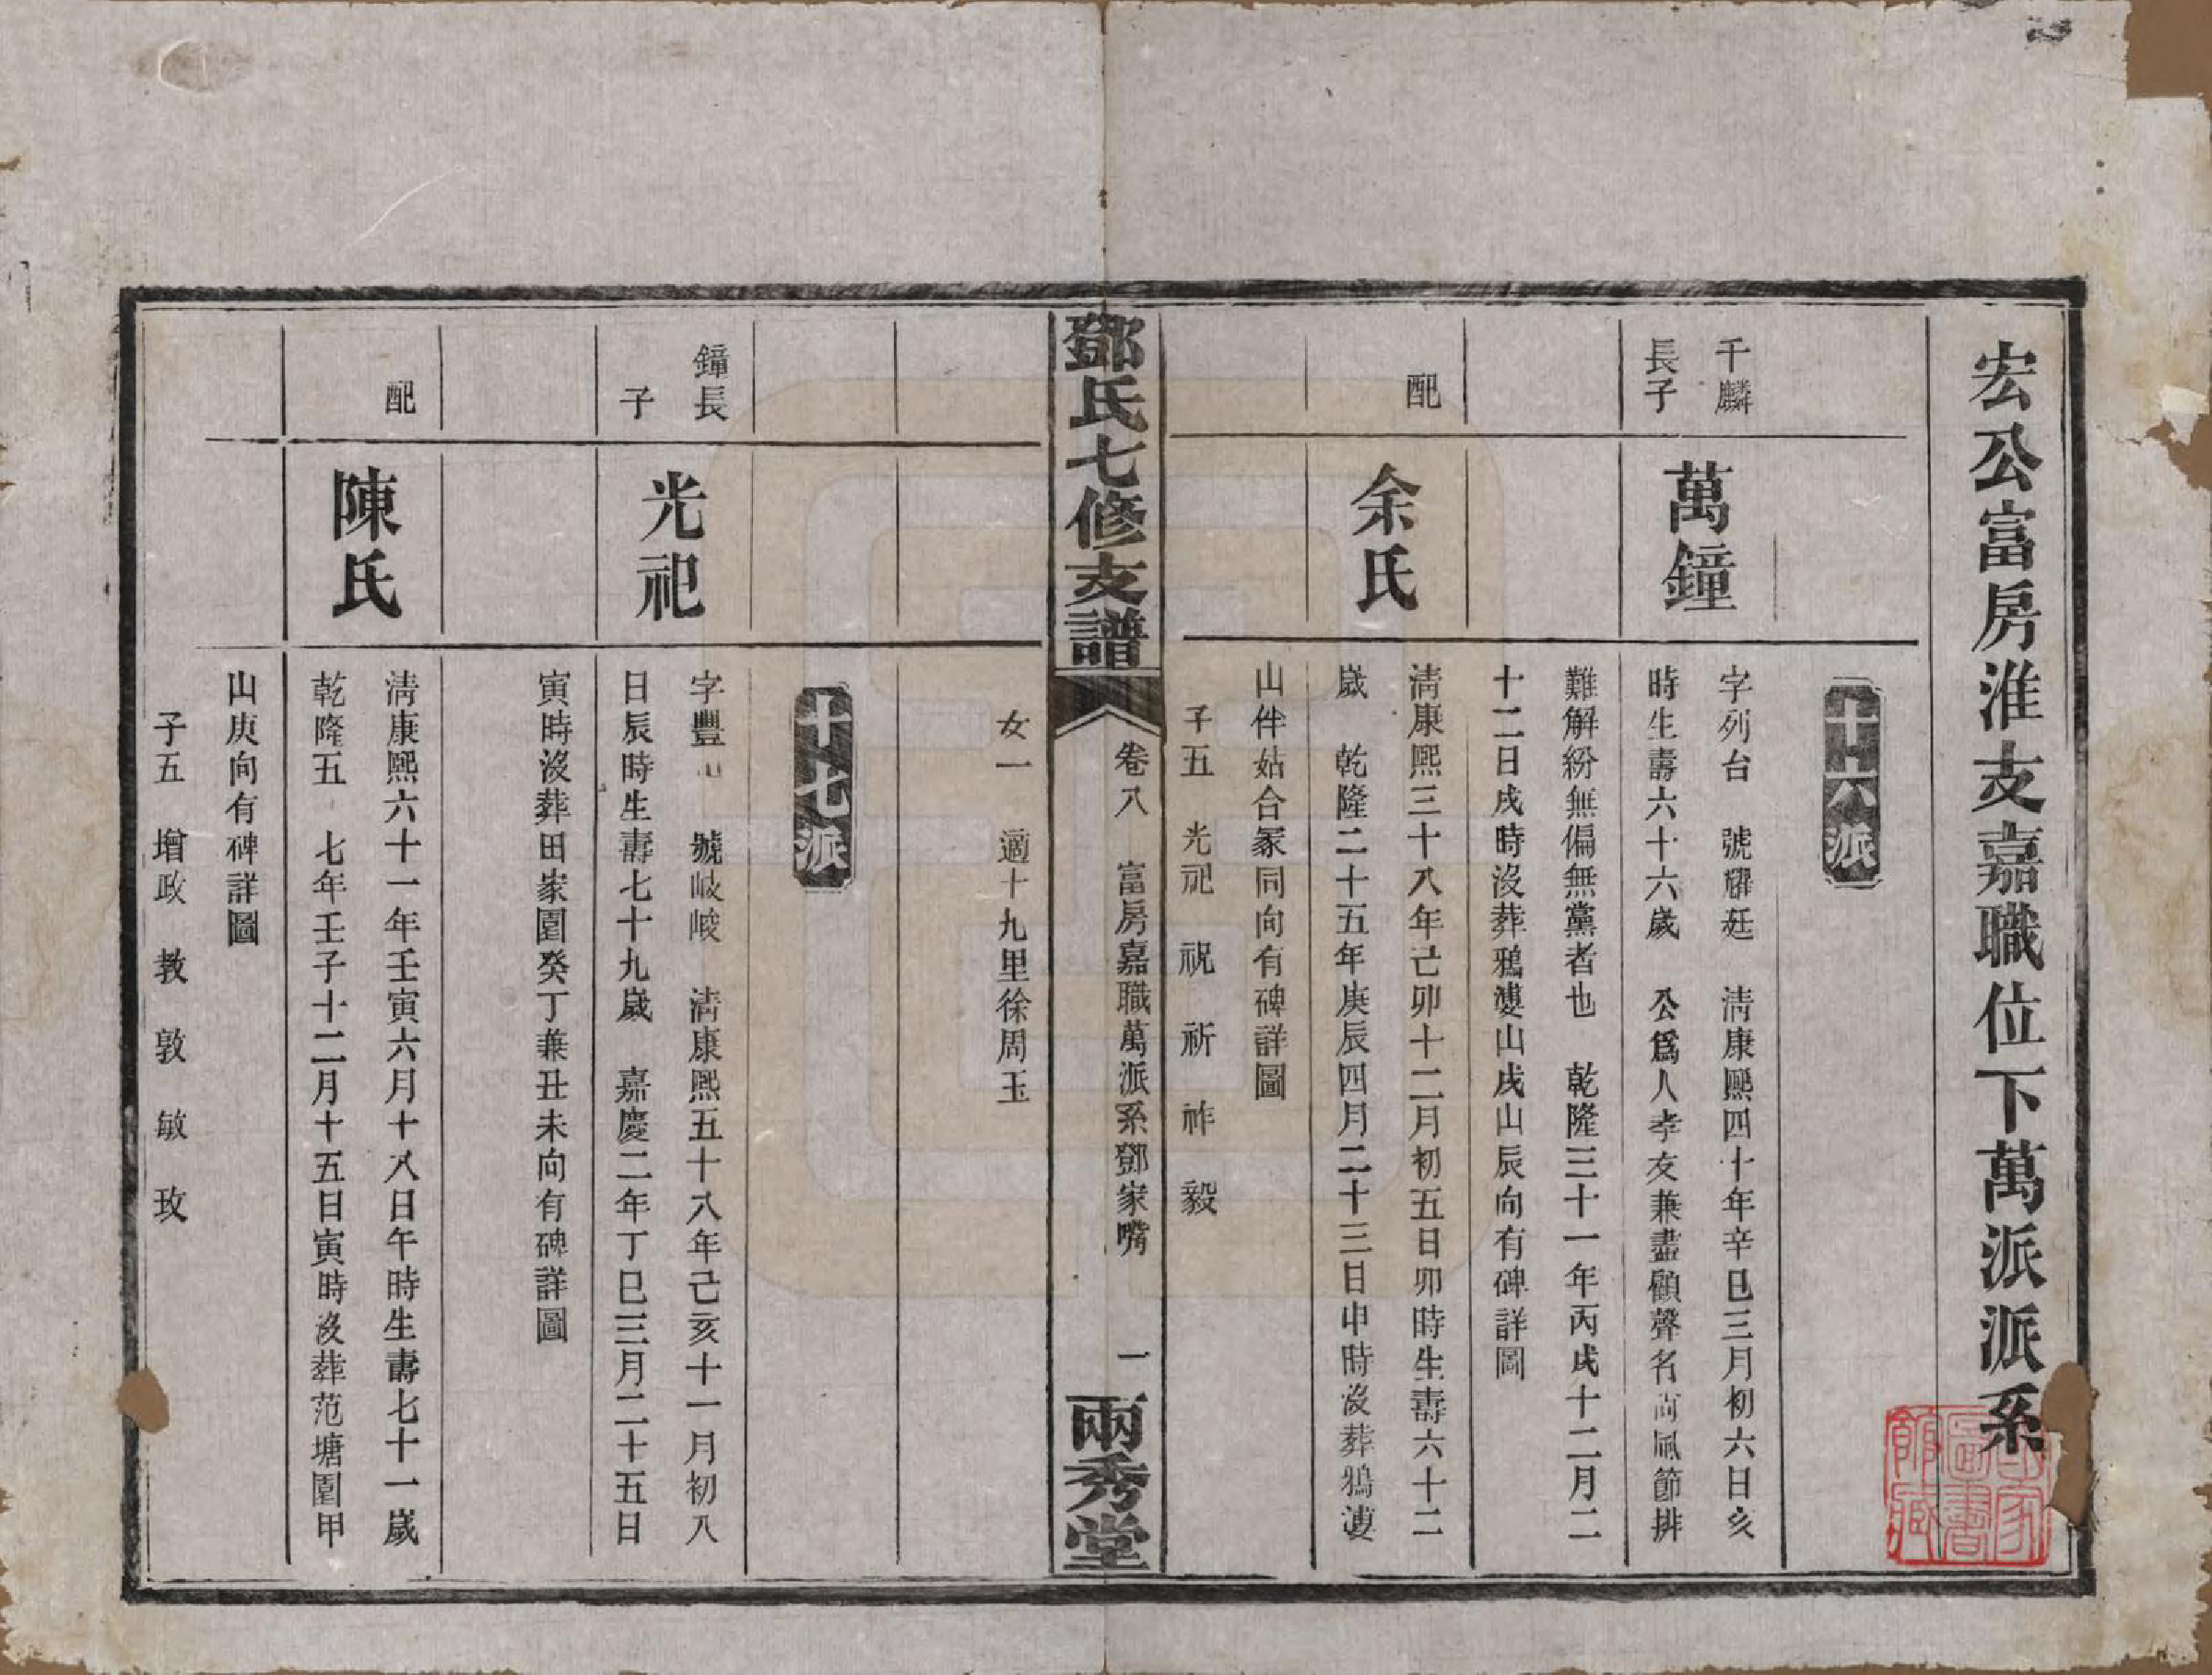 宏公富房淮支嘉職位下萬派派系
十六派
千麟
長子
萬鐘
字列台　號耀廷　清康熙四十年辛巳三月初六日亥
時生壽六十六歲　公爲人孝友兼盡顧聲名尚風節排
難解紛無偏無黨者也　乾隆三十一年丙戌十二月二
十二日戌時沒葬鴉漊山戌山辰向有碑詳圖
配
余氏
清康熙三十八年己卯十二月初五日卯時生壽六十二
歲　乾隆二十五年庚辰四月二十三日申時沒葬鴉漊
山伴姑合冢同向有碑詳圖
子五　光祀　祝　祈　祚　毅
鄧氏七修支譜
卷八　富房嘉職萬派系鄧家嘴　一
兩秀堂
女一　適十九里徐周玉
十七派
鐘長
子
光祀
字豐　號岐峻　清康熙五十八年己亥十一月初八
日辰時生壽七十九歲　嘉慶二年丁巳三月二十五日
寅時沒葬田家園癸丁兼丑未向有碑詳圖
配
陳氏
清康熙六十一年壬寅六月十八日午時生壽七十一歲
乾隆五　七年壬子十二月十五日寅時沒葬范塘園甲
山庚向有碑詳圖
子五　增政　教　敦　敏　玫
國家圖書館藏